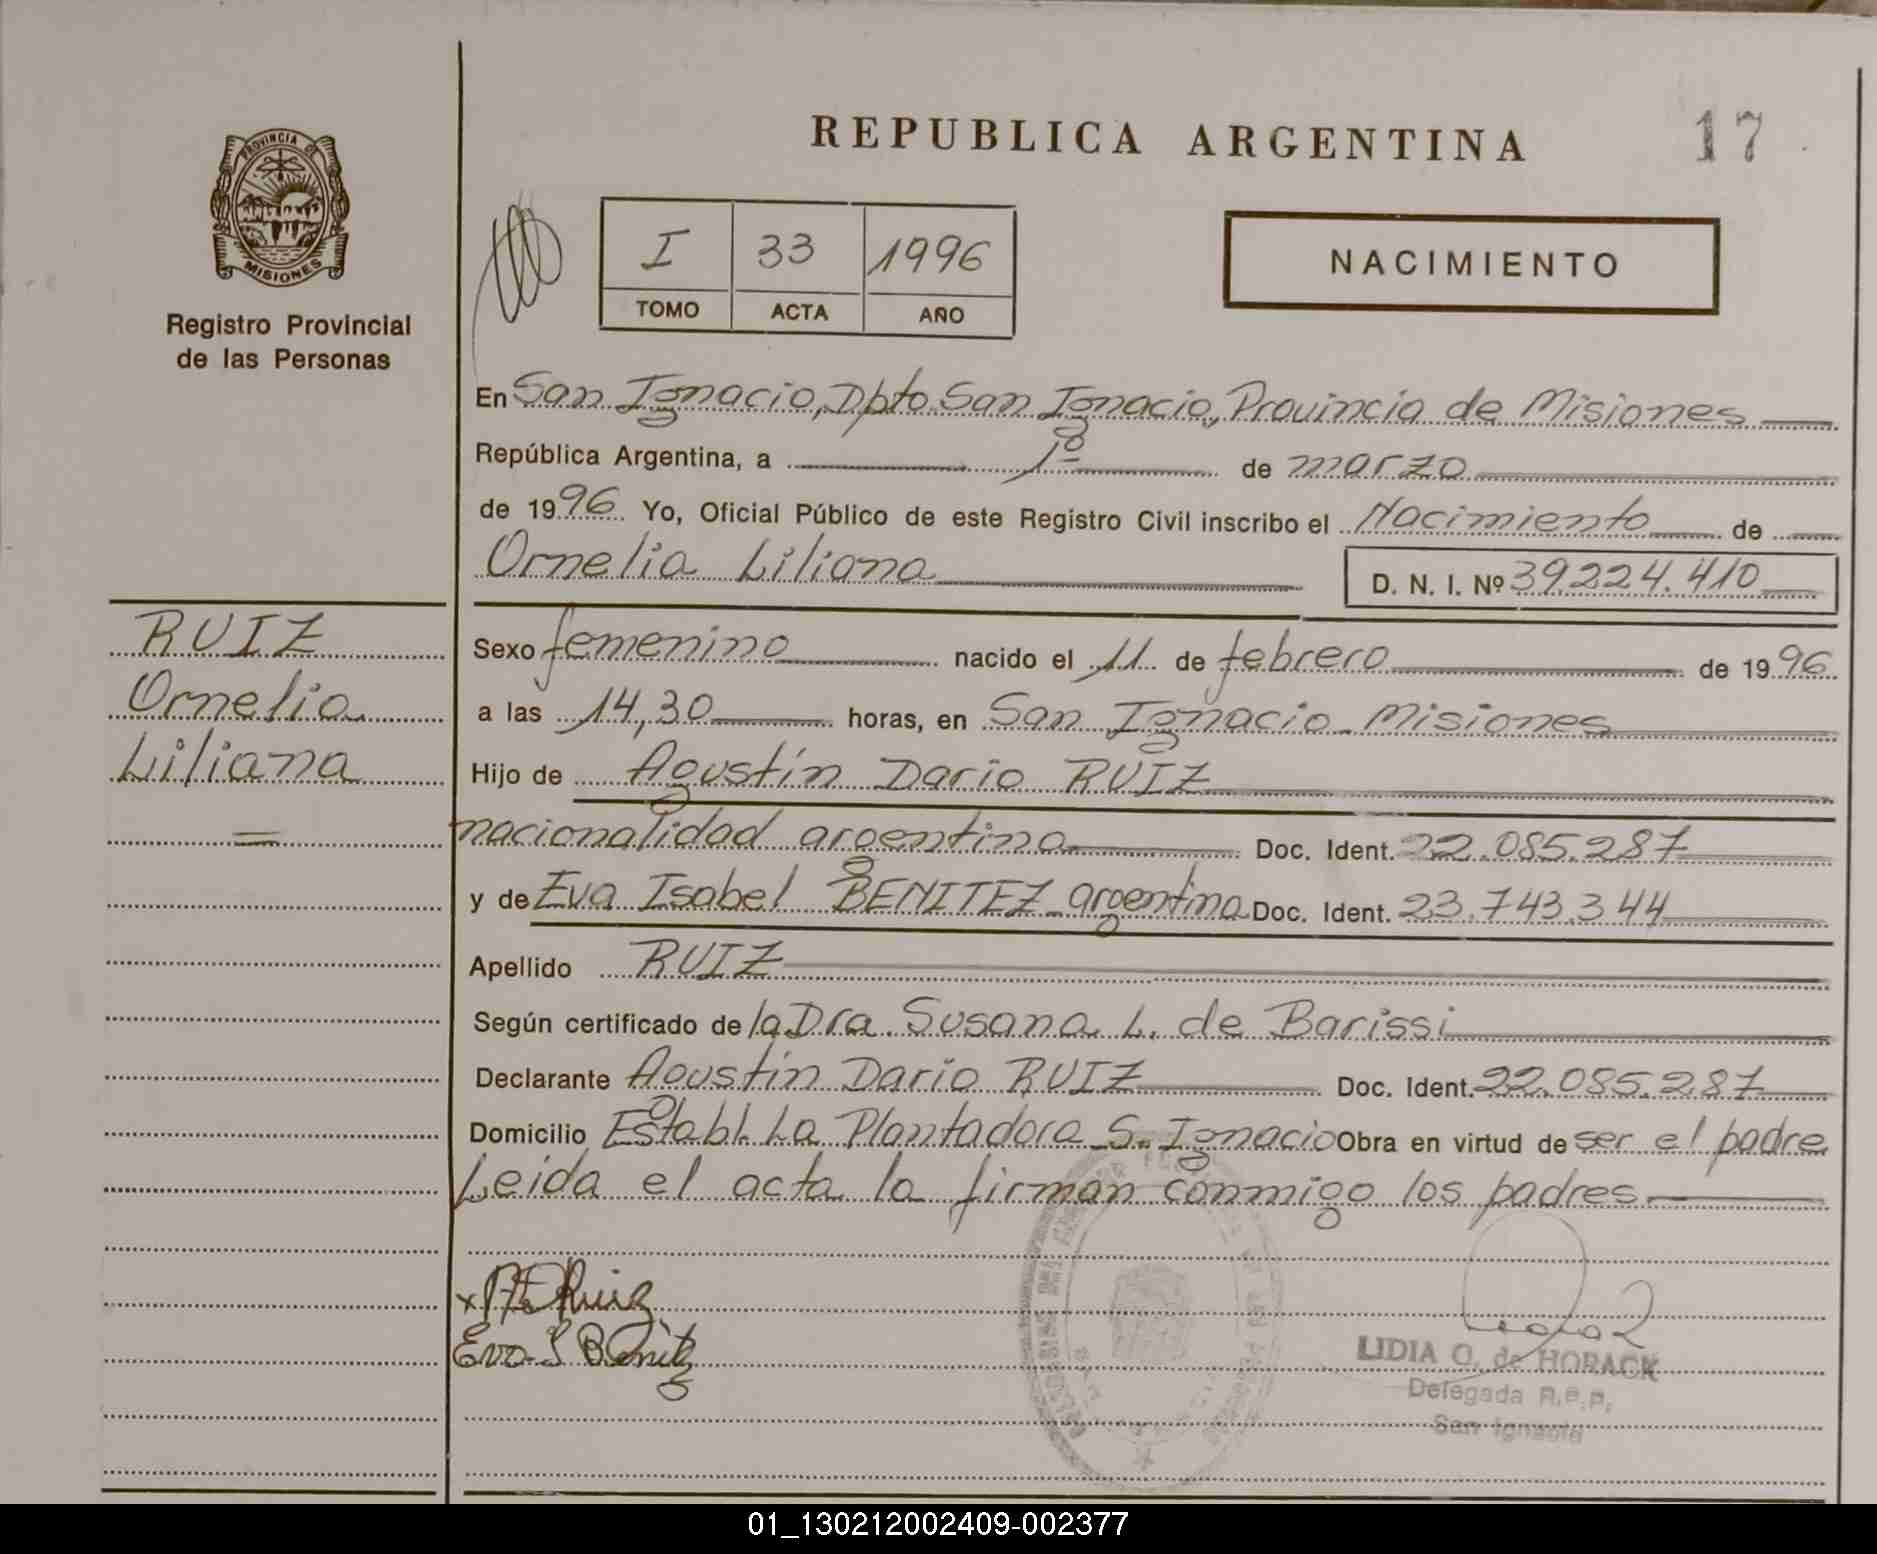 REPUBLICA ARGENTINA
17
PROVINCIA DE
MISIONES
Registro Provincial
de las Personas
I 33 1996
TOMO ACTA AÑO
NACIMIENTO
En San Ignacio, Dpto. San Ignacio, Provincia de Misiones
República Argentina, a 1º de marzo
de 1996 Yo, Oficial Público de este Registro Civil inscribo el Nacimiento de
Ornelia Liliana
D. N. I. Nº 39.224.410
RUIZ
Ornelia
Liliana
Sexo femenino nacido el 11 de febrero de 1996
a las 14,30 horas, en San Ignacio - Misiones
Hijo de Agustín Dario RUIZ
nacionalidad argentina Doc. Ident. 22.085.287
y de Eva Isabel BENITEZ - argentina Doc. Ident. 23.743.344
Apellido RUIZ
Según certificado de la Dra. Susana L. de Barissi
Declarante Agustín Dario RUIZ Doc. Ident. 22.085.287
Domicilio Establ. La Plantadora S. Ignacio Obra en virtud de ser el padre
Leida el acta la firman conmigo los padres
Ruiz
Eva I Benitez
LIDIA O. de HORACK
Delegada R.P.P.
San Ignacio
01_130212002409-002377